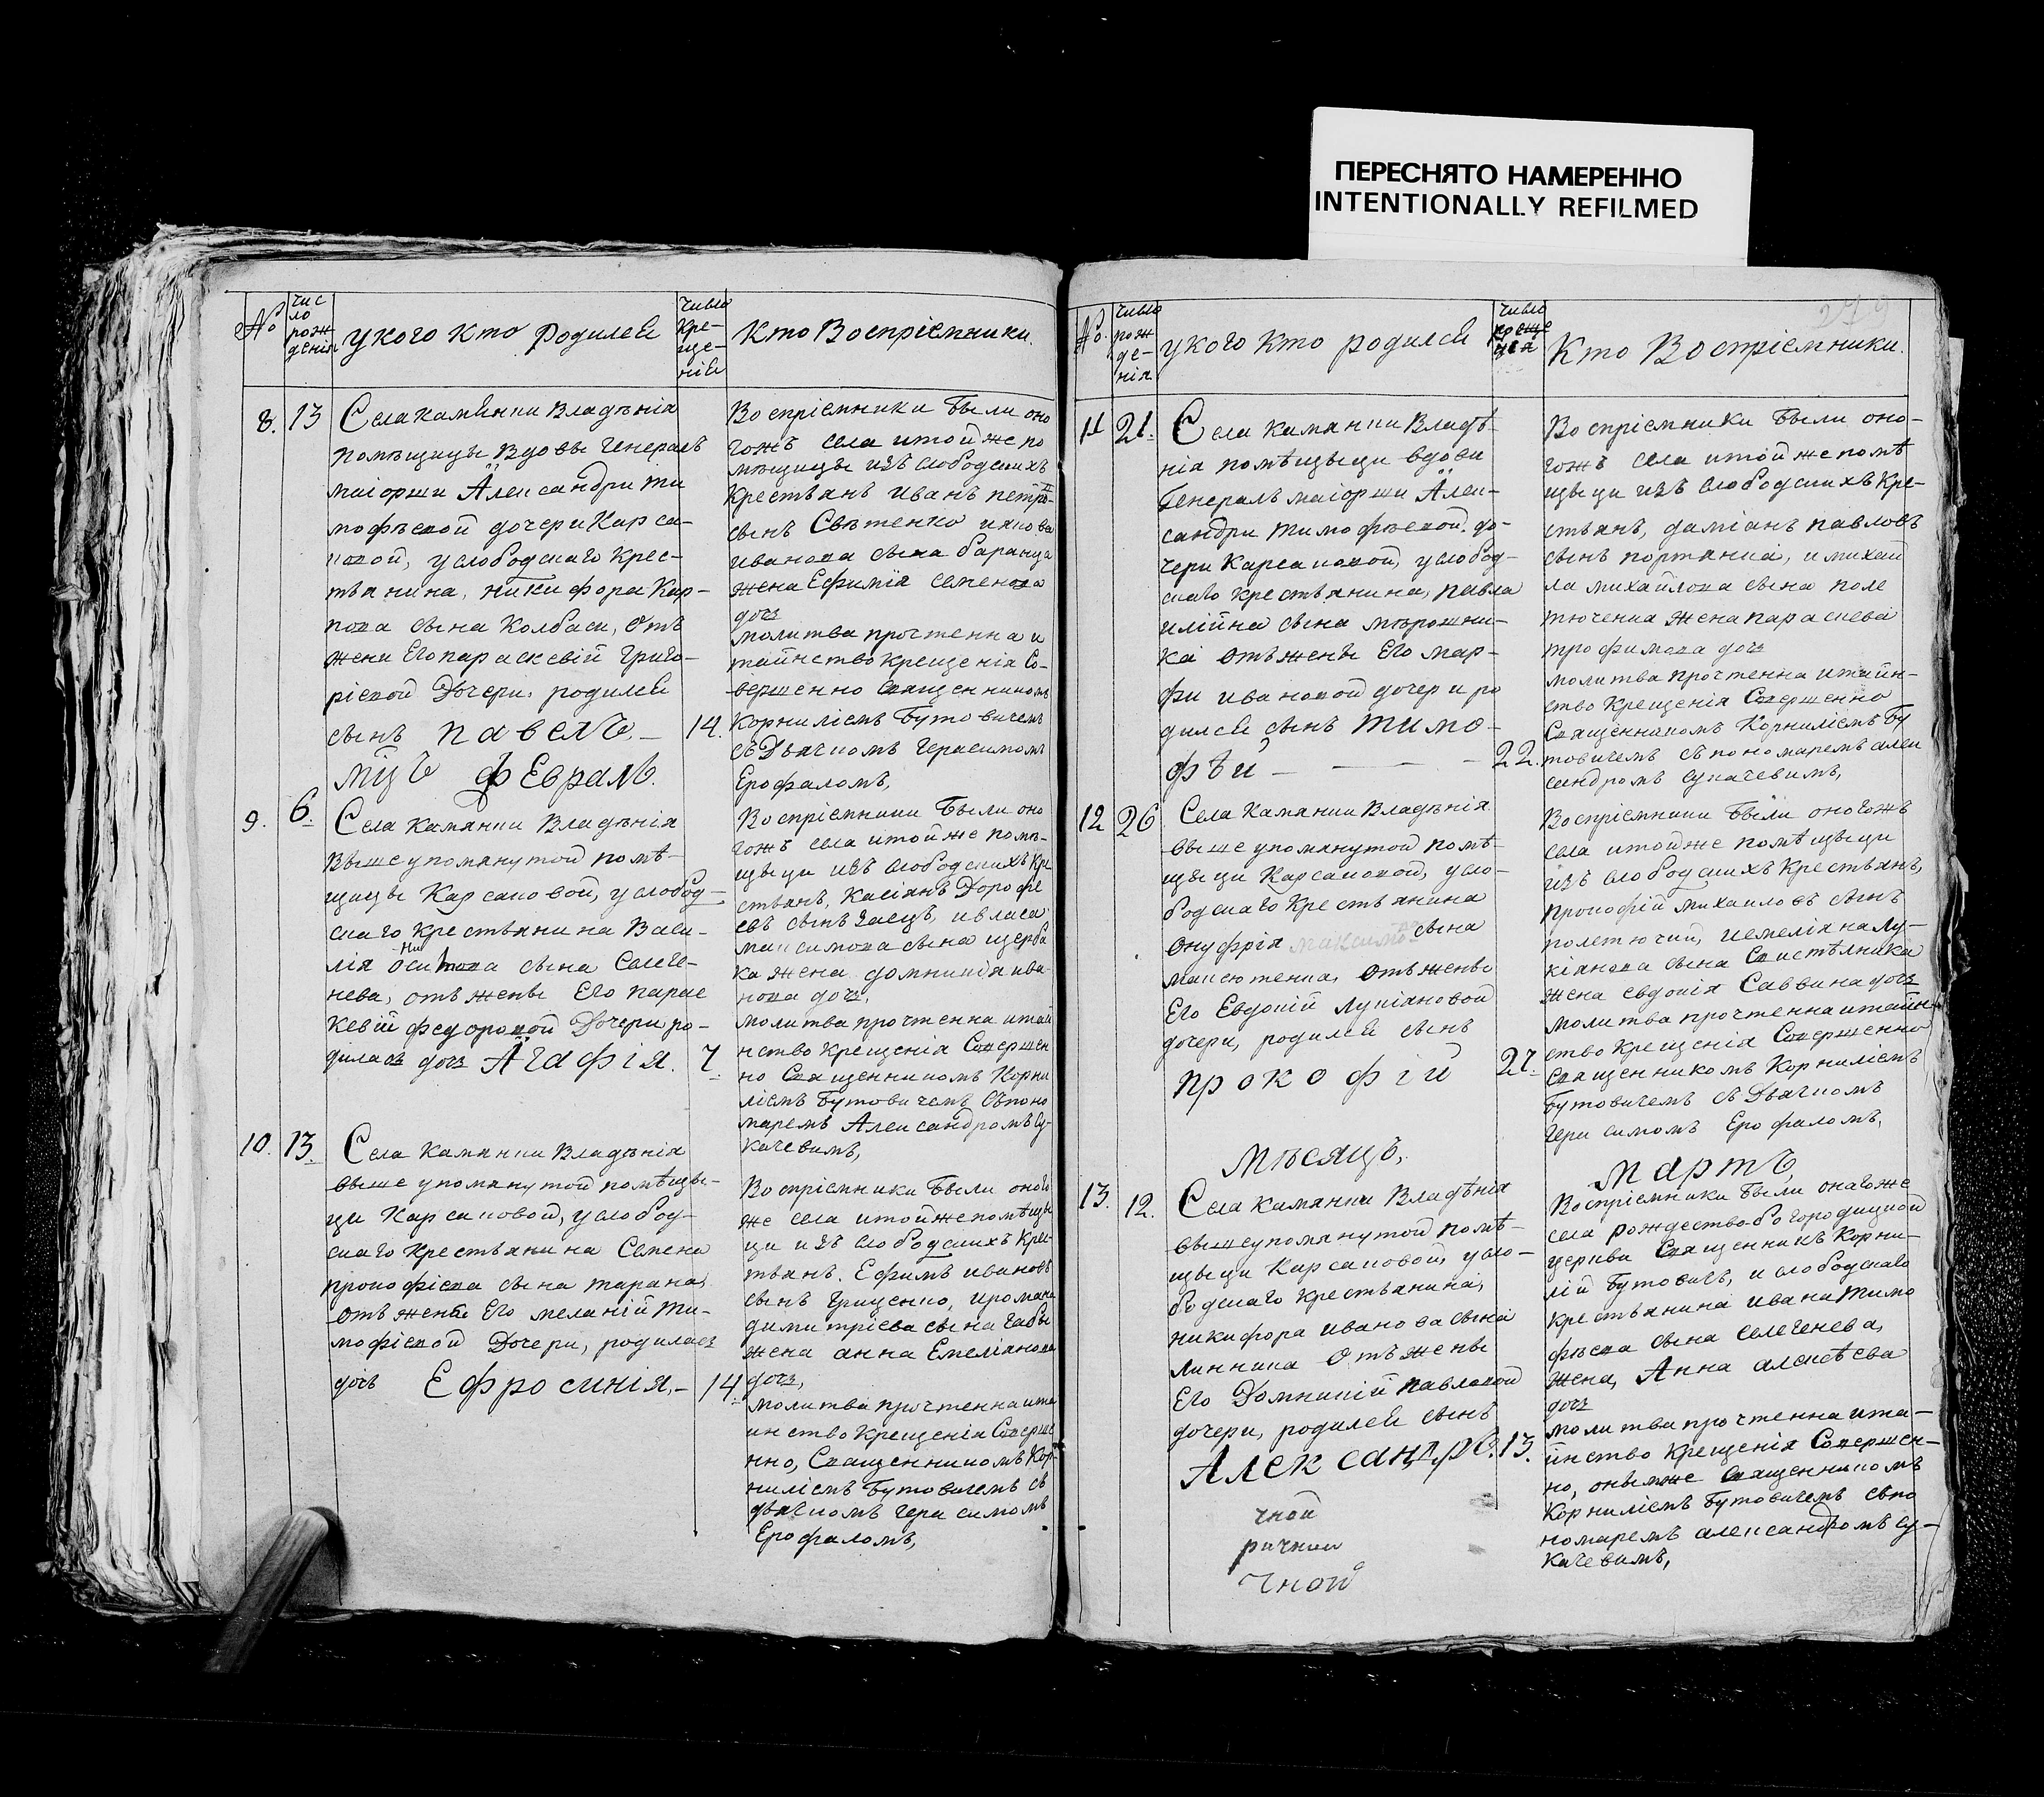 ПЕРЕСНЯТО НАМЕРЕННО
INTENTIONALLY REFILMED
№
чис
ло
рож
денія
у кого кто родился
число
кре-
ще-
нія
Кто Воспріемники.
8.
13
Села камянки Владѣнія
помѣщицы Вдовы Генералъ
маіорши Александри ти
мофѣевой дочери Карса-
ковой, услободскаго крес-
тьянина, никифора Кар-
пова сына Колбаси, отъ
жени Его параскевій григо-
ріевой Дочери, родился
сынъ павелъ.
14.
Воспріемники были оно
гожъ села итойже по
мѣщицы изъ слободскихъ
крестьянъ иванъ петро-
сынъ Свѣтенко иякова
иванова сына баранца
жена Ефимія семенова
дочъ
молитва прочтенна и
таинство крещенія Со-
вершенно Священникомъ
корниліемъ бутовичемъ
съ Дьячкомъ герасимомъ
Ерофаломъ,
мцъ февраль.
9.
6.
Села камянки Владѣнія
выше упомянутой помѣ-
щицы Карсаковой, услобод-
скаго крестьянина Васи-
лія оси сына Селеге-
нева, отъ жены Его парас
кевій федоровой Дочери ро-
диласъ дочъ Агафія.
7.
Воспріемники были оно
гожъ села итойже помѣ-
щицы изъ слободскихъ кре-
стьянъ, Касіянъ Дорофѣ
евъ сынъ заецъ, ивласа
максимова сына щерба
ка жена домникія ива
нова дочъ,
молитва прочтенна итаи
нство крещенія Совершен
но Священникомъ Корни
ліемъ бутовичемъ съпоно
маремъ Александромъ Су-
качевимъ,
10.
13.
Села камянки Владѣнія
выше упомянутой помѣщы-
ци Карсаковой, услобод-
скаго крестьянина Семена
прокофіева сына тарана,
отъ жены Его меланій ти-
мофіевой Дочери, родиласъ
дочъ Ефросинія,-
14.
Воспріемники были оного
же села итойже помѣщы
ци изъ слободскихъ крес
тьянъ. Ефимъ ивановъ
сынъ грищенко, ирамана
димитріева сына габы
жена анна Емеліянова
дочъ,
молитва прочтенна ита
инство крещенія Соверше
нно, Священникомъ Кор-
ниліемъ бутовичемъ съ
дьячкомъ герасимомъ
Ерофаломъ,
279
№.
число
рож
де-
нія
у кого кто родился
число
креще
нія
Кто Воспріемники.
11
21.
Села камянки Владѣ-
нія помѣщыци вдови
Генералъ маіорши Алек-
сандри тимофѣевой. до-
чери Карсаковой, услобод-
скаго крестьянина, павла
илійна сына мірошни-
ка отъжены Его мар-
фи ивановой дочери ро
дился сынъ тимо-
фѣй - - -
22.
Воспріемники были оно-
гожъ села итойже помѣ
щыци изъ слободскихъ кре-
стьянъ, даміянъ павловъ
сынъ портянка, имихай
ла михайлова сына поле
тюченка жена параскева
трофимова дочъ
молитва прочтенна итаин-
ство крещенія Совершенно
Священникомъ Корниліемъ бу
товичемъ съпономаремъ алек
сандромъ сукачевимъ,
12
26
Села камянки Владѣнія
выше упомянутой помѣ-
щыци Карсаковой, усло-
бодскаго крестьянина
онуфрія максимова сына
максютенка, отъжены
Его Евдокій лукіяновой
дочери, родился сынъ
прокофій
27.
Воспріемники были оногожъ
села итойже помѣщыци
изъ слободскихъ крестьянъ,
прокофій михаиловъ сынъ
полетючий, иемеліяна лу-
кіянова сына Свистѣлника
жена евдокія Саввина дочъ
молитва прочтенна итаин-
ство крещенія Совершенно
Священникомъ Корниліемъ
бутовичемъ съ Дьячкомъ
герасимомъ Ерофаломъ,
мѣсяцъ, мартъ
13.
12.
Села камянки Владѣнія
вышеупомянутой помѣ-
щыци Карсаковой, усло-
бодскаго крестьянина,
никифора иванова сына
линника отъ жены
Его Домникій павловой
дочери, родился сынъ
Александръ.
13.
Воспріемники были оногоже
села рождество-богородицкой
церкви Священникъ Корни-
лій бутовичъ, и слободскаго
крестьянина ивана тимо
фѣева сына селегенева,
жена, Анна алексѣева
дочъ
молитва прочтенна ита-
инство крещенія Совершен-
но, онымже Священникомъ
Корниліемъ бутовичемъ съпо
номаремъ александромъ су-
качевимъ,
чной
ричний
чной